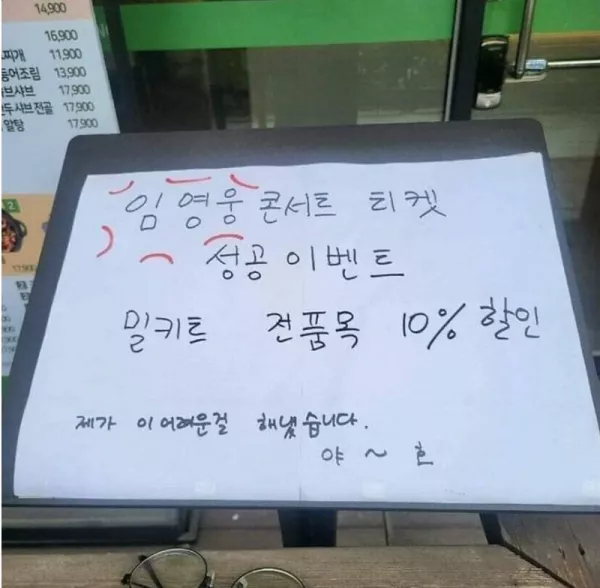 14,900
16,900
찌개 11,900
13,900
17,900
17,900
알탕 17,900
임영웅 콘서트 티켓
성공 이벤트
밀키트 전품목 10% 할인
제가 이 어려운걸 해냈습니다.
야 ~ 호